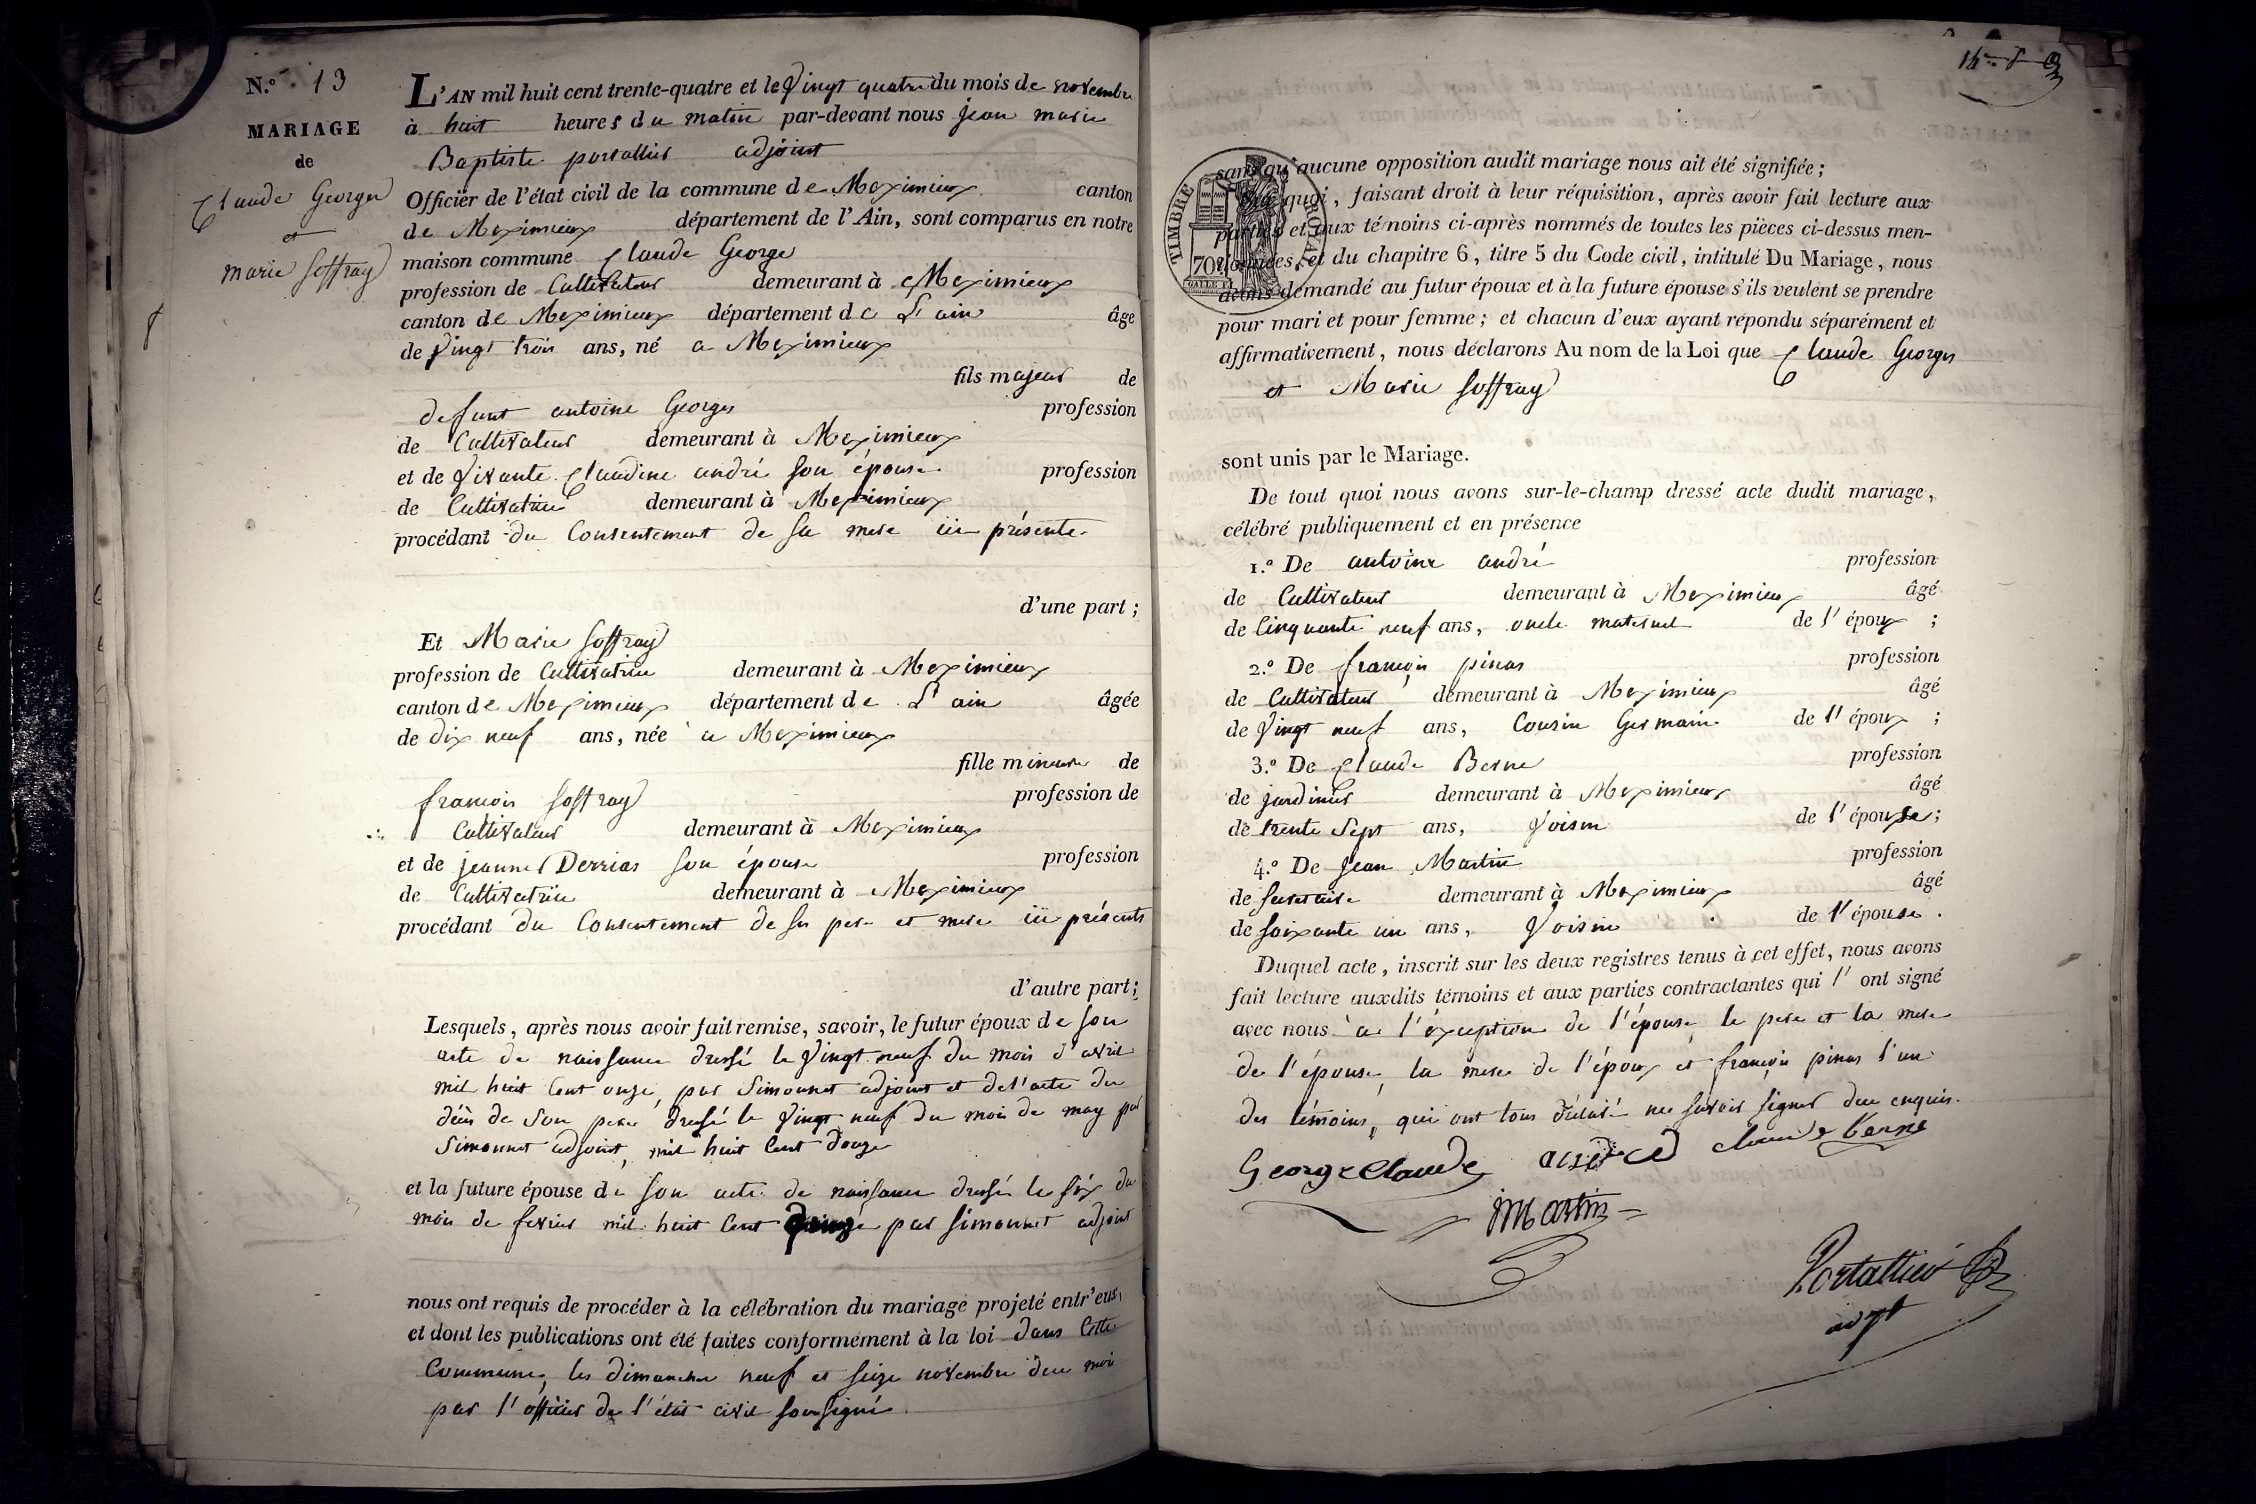 N.º 13
MARIAGE
de
Claude George
et
marie Soffray
L'AN mil huit cent trente-quatre et le Vingt quatre du mois de novembre
à huit heures du matin par-devant nous jean marie
Baptiste portallier adjoint
Officier de l'état civil de la commune de Meximieux canton
de Meximieux département de l'Ain, sont comparus en notre
maison commune Claude George
profession de Cultivateur demeurant à Meximieux
canton de Meximieux département de L'ain âge
de Vingt trois ans, né a Meximieux
fils majeur de
defunt antoine George profession
de Cultivateur demeurant à Meximieux
et de Vivante Claudine andré son épouse profession
de Cultivatrice demeurant à Meximieux
procédant du Consentement de sa mere ici présente
d'une part ;
Et Marie Soffray
profession de Cultivatrice demeurant à Meximieux
canton de Meximieux département de L'ain âgée
de dix neuf ans, née a Meximieux
fille mineure de
françois Soffray profession de
Cultivateur demeurant à Meximieux
et de jeanne Derrias son épouse profession
de Cultivatrice demeurant à Meximieux
procédant du Consentement de ses pere et mere ici présents
d'autre part ;
Lesquels, après nous avoir fait remise, savoir, le futur époux de son
acte de naissance dressé le Vingt neuf du mois d'avril
mil huit cent onze, par Simonnet adjoint et de l'acte du
décès de son pere dressé le Vingt neuf du mois de may par
Simonnet adjoint, mil huit cent douze
et la future épouse de son acte de naissance dressé le six du
mois de fevrier mil huit cent quinze par Simonnet adjoint
nous ont requis de procéder à la célébration du mariage projeté entr'eux,
et dont les publications ont été faites conformément à la loi dans cette
Commune, les dimanches neuf et seize novembre du mois
par l'officier de l'état civil soussigné
TIMBRE ROYAL
70
sans qu'aucune opposition audit mariage nous ait été signifiée ;
Sur quoi, faisant droit à leur réquisition, après avoir fait lecture aux
parties et aux témoins ci-après nommés de toutes les pièces ci-dessus men-
tionnées, et du chapitre 6, titre 5 du Code civil, intitulé Du Mariage, nous
avons demandé au futur époux et à la future épouse s'ils veulent se prendre
pour mari et pour femme ; et chacun d'eux ayant répondu séparément et
affirmativement, nous déclarons Au nom de la Loi que Claude George
et Marie Soffray
sont unis par le Mariage.
De tout quoi nous avons sur-le-champ dressé acte dudit mariage,
célébré publiquement et en présence
1.º De antoine andré profession
de Cultivateur demeurant à Meximieux âgé
de Cinquante neuf ans, oncle maternel de l'époux ;
2.º De françois pinas profession
de Cultivateur demeurant à Meximieux âgé
de Vingt neuf ans, Cousin Germain de l'époux ;
3.º De Claude Berne profession
de jardinier demeurant à Meximieux âgé
de trente Sept ans, Voisin de l'épouse ;
4.º De Jean Martin profession
de demeurant à Meximieux âgé
de Soixante un ans, Voisin de l'épouse .
Duquel acte, inscrit sur les deux registres tenus à cet effet, nous avons
fait lecture auxdits témoins et aux parties contractantes qui l'ont signé
avec nous à l'éxception de l'épouse, le pere et la mere
de l'épouse, la mere de l'époux et françois pinas l'un
des témoins, qui ont tous déclaré ne savoir signer de ce enquis.
George Claude andré claude berne
jMartin
Portallier
adjt